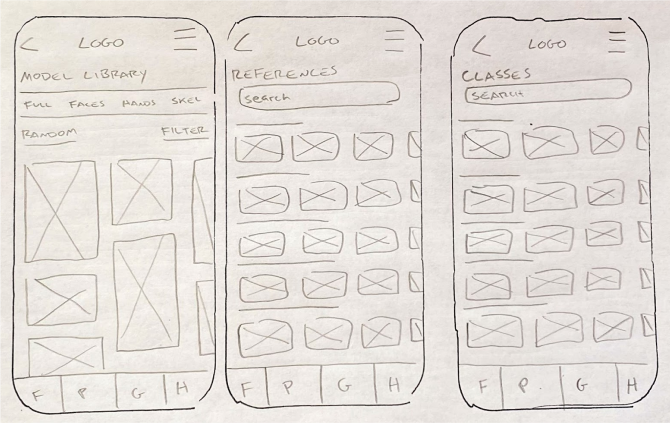 < LOGO
MODEL LIBRARY
FULL FACES HANDS SKEL
RANDOM FILTER
F P G H
< LOGO
REFERENCES
search
F P G H
< LOGO
CLASSES
SEARCH
F P. G H